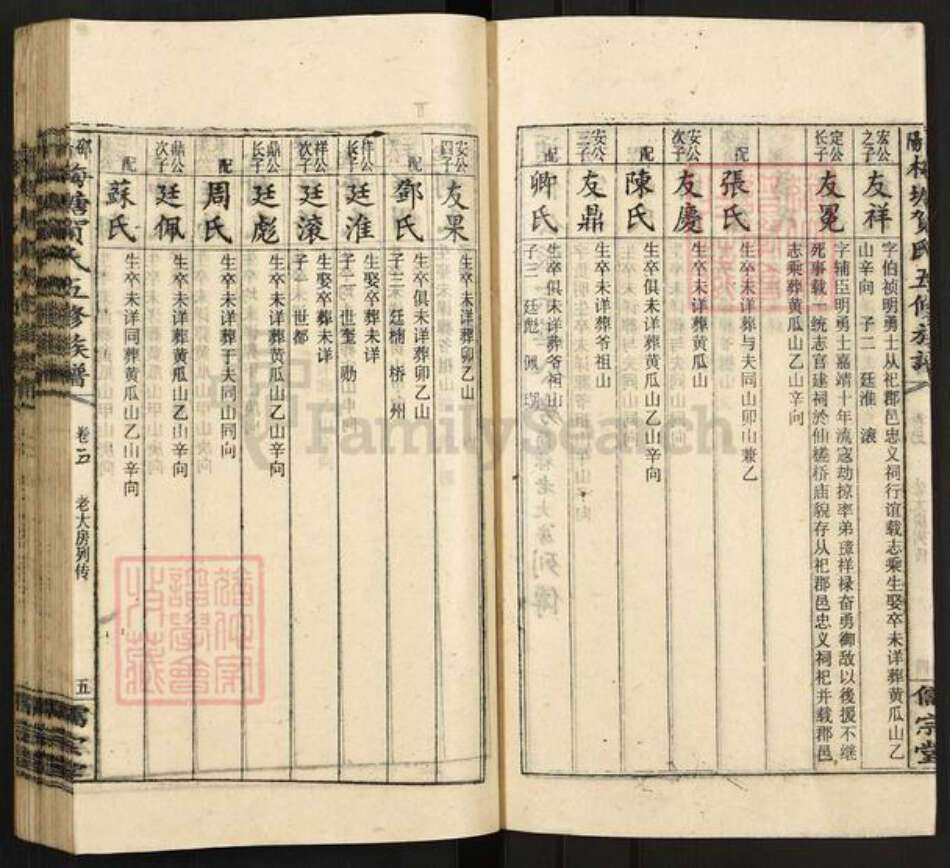 宏公之子
友祥
字伯祯明勇士从祀郡邑忠义祠行谊载志乘生娶卒未详葬黄瓜山乙
山辛向 子二 廷淮 滚
定公长子
友冕
字辅臣明勇士嘉靖十年流寇劫掠率弟 祥禄奋勇御敌以後援不继
死事载一统志官建祠於仙槎桥庙貌存从祀郡邑忠义祠祀并载郡邑
志乘葬黄瓜山乙山辛向
配
張氏
生卒未详葬与夫同山卯山兼乙
安公次子
友慶
生卒未详葬黄瓜山
配
陳氏
生卒俱未详葬黄瓜山乙山辛向
安公三子
友鼎
生卒未详葬爷祖山
配
卿氏
生卒俱未详葬爷祖山
子三 廷彪 佩
儒宗堂
安公四子
友果
生卒未详葬卯乙山
配
鄧氏
生卒俱未详葬卯乙山
子三 廷楠 桥 州
祥公长子
廷淮
生娶卒葬未详
子二 世奎 勋
祥公次子
廷滚
生娶卒葬未详
子一 世都
鼎公长子
廷彪
生卒未详葬黄瓜山乙山辛向
配
周氏
生卒未详葬于夫同山同向
鼎公次子
廷佩
生卒未详葬黄瓜山乙山辛向
配
蘇氏
生卒未详同葬黄瓜山乙山辛向
賀氏五修族譜
老大房列传
五
FamilySearch